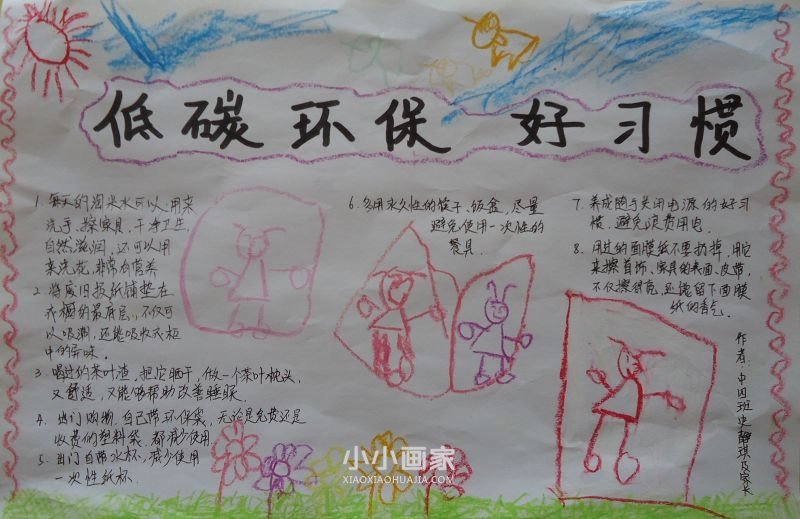 低碳环保 好习惯
1. 每天的淘米水可以用来
洗手、擦家具,干净卫生,
自然滋润,还可以用
来浇花,非常有营养
2. 将废旧报纸铺垫在
衣橱的最底层,不仅可
以吸潮,还能吸收衣柜
中的异味。
3. 喝过的茶叶渣,把它晒干,做一个茶叶枕头,
又舒适,又能够帮助改善睡眠。
4. 出门购物,自己带环保袋,无论是免费还是
收费的塑料袋,都减少使用
5. 出门自带水杯,减少使用
一次性纸杯.
6. 多用永久性的筷子、饭盒,尽量
避免使用一次性的
餐具.
7. 养成随手关闭电源的好习
惯,避免浪费用电.
8. 用过的面膜纸不要扔掉,用它
来擦首饰、家具的表面、皮带,
不仅擦得亮,还能留下面膜
纸的香气.
作者:中四班史静琪及家长
小小画家
XIAOXIAOHUAJIA.COM